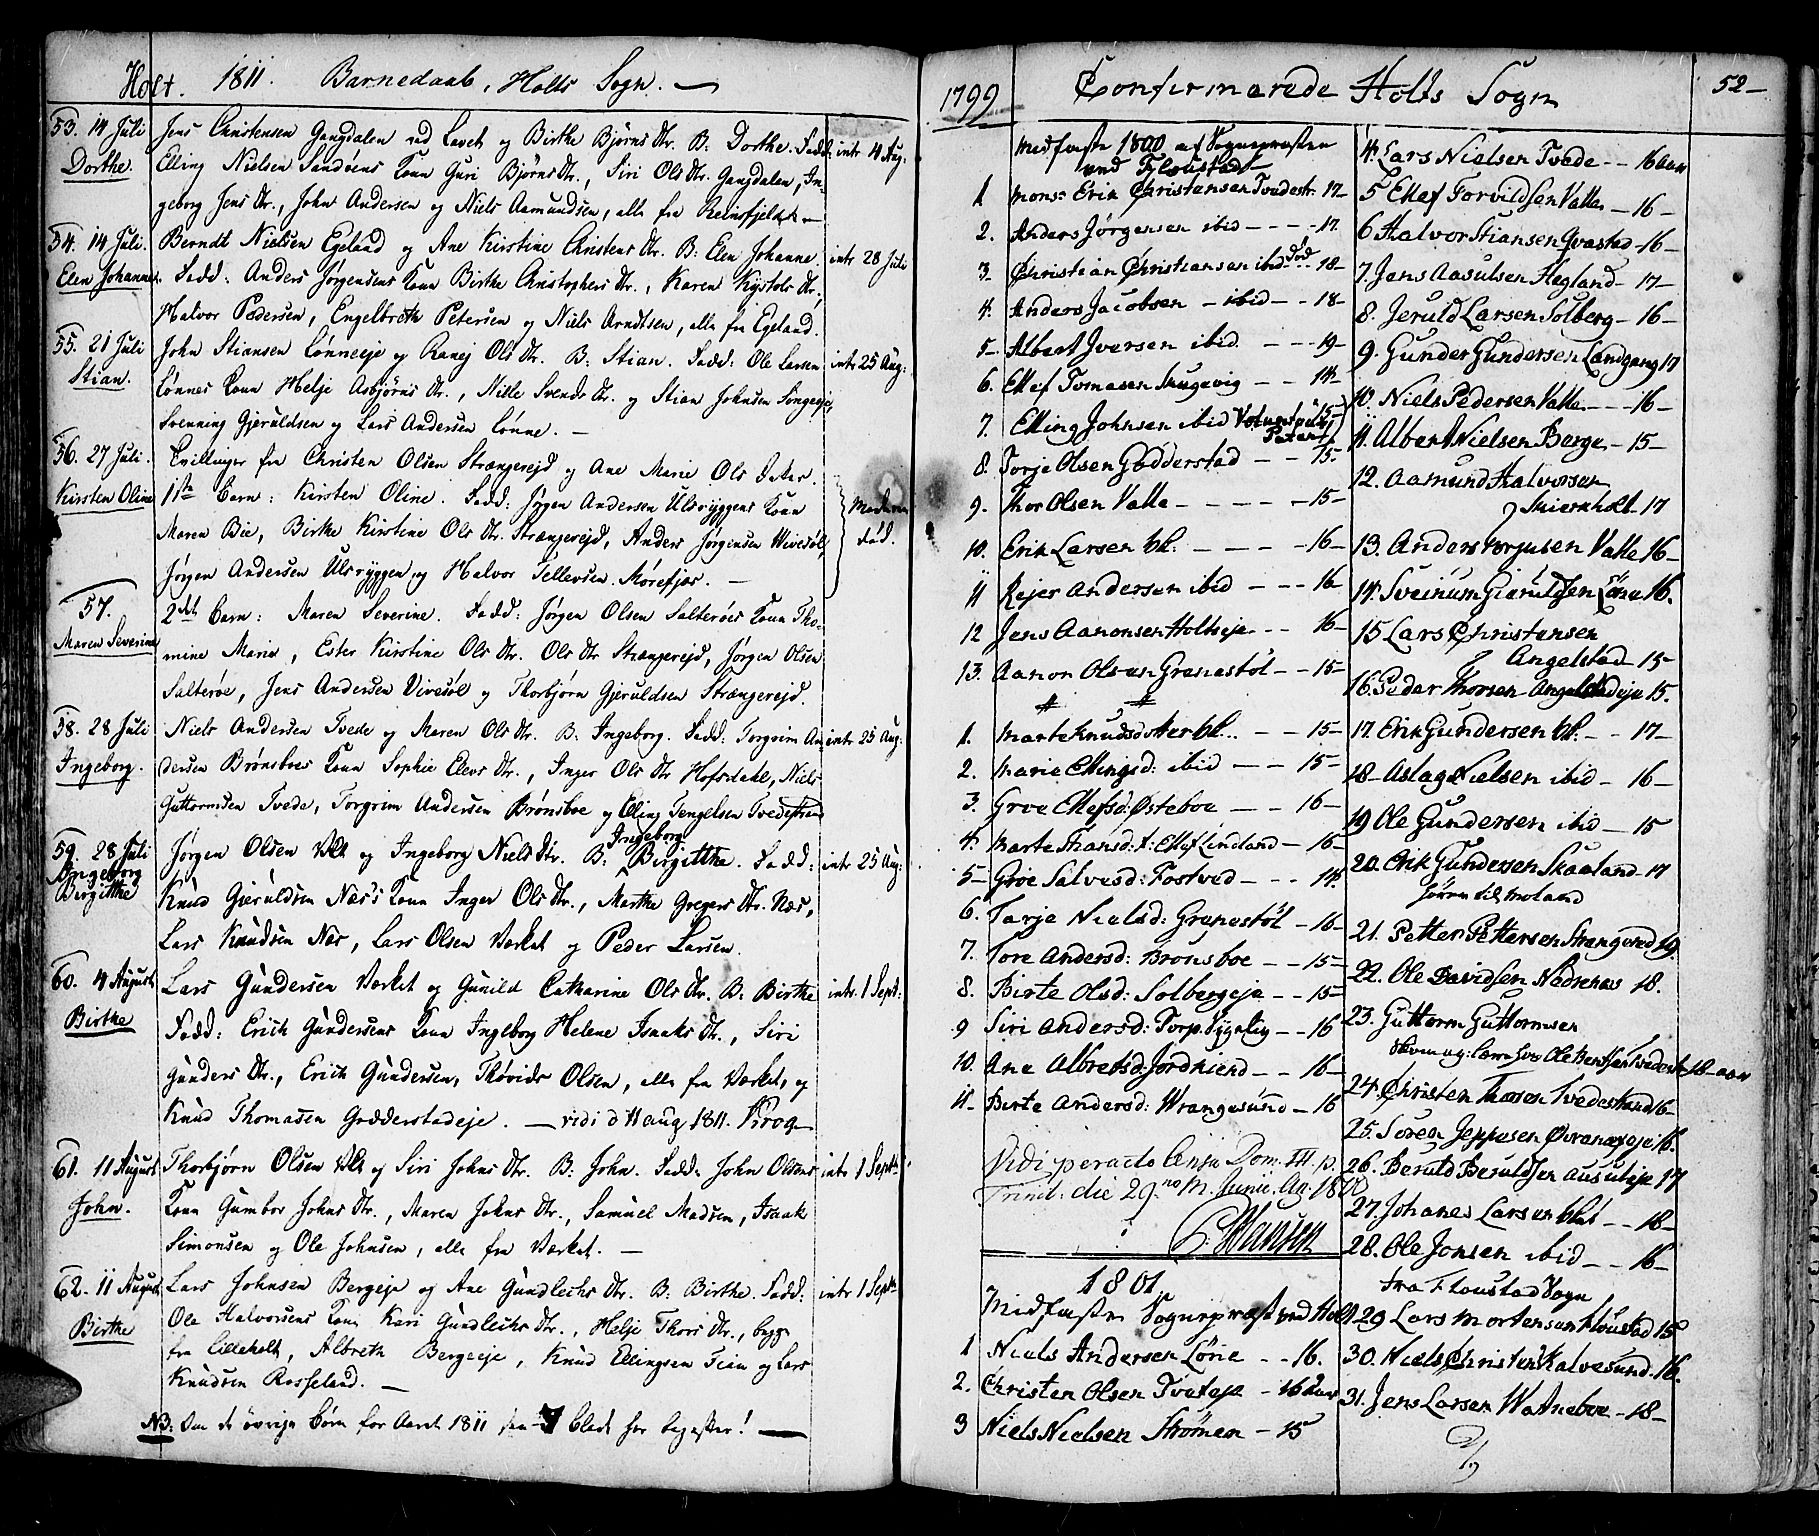 Holt. 1811. Barnedaab, Holts Sogn. —
53. 14 Juli
Dorthe.
Jens Christensen Gangdalen ved Lavet og Birthe Bjørns Dtr. B: Dorthe. Fadd: intr 4 Aug:
Elling Nielsen Sandøens Kone Guri Bjørns Dtr., Siri Ols Dtr. Gangdalen, In-
geborg Jens Dtr., John Andersen og Niels Aamundsen, alle fra Reinsfjeldet —
54. 14 Juli.
Elen Johanne.
Berndt Nielsen Egeland og Ane Kirstine Christens Dtr. B: Elen Johanne. intr 28 Juli
Fadd: Anders Jørgensens Kone Birthe Christophers Dtr., Karen Kystols Dtr.,
Halvor Pedersen, Engelbreth Petersen og Niels Arndtsen, alle fra Egeland.
55. 21 Juli
Stian.
John Stiansen Lønneeje og Ranej Ols Dtr. B: Stian. Fadd: Ole Larsen intr 25 Aug:
Lønnes Kone Helje Asbjørns Dtr., Nille Svends Dtr. og Stian Johnsen Songeeje,
Svenning Gjeruldsen og Lars Andersen Lønne. —
56. 27 Juli.
Kirsten Oline
Tvillinger fra Christen Olsen Strængerejd og Ane Marie Ols Dater.
1ste Barn: Kirsten Oline. Fadd: Jørgen Andersen Ulsryggens Kone
Maren Bie, Birthe Kirstine Ols Dtr. Strængerejd, Anders Jørgensen Wivesøl,
Jørgen Andersen Ulsryggen og Halvor Tellevsen Mørefjær. —
Moderen
død.
57.
Maren Severine
2det Barn: Maren Severine. Fadd: Jørgen Olsen Salterøes Kone Tho-
mine Marie, Ester Kirstine Ols Dtr. Ols Dtr Strængerejd, Jørgen Olsen
Salterøe, Jens Andersen Vivesøl og Thorbjørn Gjeruldsen Strængerejd.
58. 28 Juli
Ingeborg.
Niels Andersen Tvede og Maren Ols Dtr. B: Ingeborg. Fadd: Torgrim An- intr 25 Aug:
dersen Brønsboes Kone Sophie Elevs Dtr., Inger Ols Dtr Hofsdahl, Niels
Guttormsen Tvede, Torgrim Andersen Brønsboe og Elling Tengelsen Tvedestrand
59. 28 Juli
Ingeborg
Birgitthe
Ingeborg
Jørgen Olsen Vkt og Ingeborg Niels Dtr. B: Birgitthe. Fadd: intr 25 Aug:
Knud Gjeruldsen Næs's Kone Inger Ols Dtr., Marthe Gregers Dtr. Næs,
Lars Knudsen Næs, Lars Olsen Værket og Peder Larsen.
60. 4 August
Birthe
Lars Gundersen Værket og Gunild Catharine Ols Dtr. B: Birthe intr. 1 Sept:
Fadd: Erich Gundersens Kone Ingeborg Helene Isaaks Dtr., Siri
Gunders Dtr., Erich Gundersen, Thovids Olsen, alle fra Værket, og
Knud Thomasen Grødderstadeje. — vidi d 11 aug 1811. Krog
61. 11 August
John.
Thorbjørn Olsen Vkt og Siri Johns Dtr. B: John. Fadd: John Olsens intr 1 Sept:
Kone Gumbor Johns Dtr., Maren Johns Dtr., Samuel Madsen, Isaak
Simonsen og Ole Johnsen, alle fra Værket. —
62. 11 August
Birthe
Lars Johnsen Bergeje og Ane Gundlechs Dtr. B: Birthe. Fadd: intr 1 Sept:
Ole Halvorsens Kone Kari Gundlechs Dtr., Helje Thors Dtr., begge
fra Lilleholt, Albreth Bergeeje, Knud Ellingsen Fein og Lars
Knudsen Rosseland. —
NB: Om de øvrige Børn for Aaret 1811 see 7 Blade her bagefter! —
1799 Confirmerede Holts Sogn 52 —
Midfaste 1800 af Sognepræsten
ved Floustad
1 Mons: Erik Christensen Tvedestr. 17 —
2. Anders Jørgensen ibid — — — 17.
3. Christian Christiansen ibid død — 18 —
4. Anders Jacobsen — ibid — — 18 —
5 — Albert Iversen ibid — — — 19 —
6. Ellef Tomasen Skugevig — — 14 —
7. Elling Johnsen ibid 15 —
8. Torje Olsen Gødderstad — — 15.
9. Thor Olsen Valle — — — — 15 —
10. Erik Larsen bl. — — — — 16 —
11 Rejer Andersen ibid — — — 16 —
12 Jens Aanonsen Holtseje — — 16 —
13. Aanon Olsen Grenestøl — — 15 —
1. Marte Knudsdotter bl. — — 15 —
2. Marie Ellingsd: ibid — — 15 —
3. Groe Ellefsd: Østeboe — — 16 —
4. Marte Thansd: t. Ellef Lindland — 16 —
5 — Groe Salvesd: Fostved — — 14.
6. Tarje Nielsd: Grenestøl — 16 —
7. Tore Andersd: Brønsboe — — 15 —
8. Birte Olsd: Solbergeje — — 15 —
9 Siri Andersd: Torp. — — 16
10. Ane Albretsd: Jordkiend — — 16 —
11 — Birte Andersd: Wrangesund — 16
Vidi peracto Censu Dom. III p.
Trind: die 29.no M. Junii. An. 1800
P. Hansen
1801
Midfaste Sognepræst ved Holt
1 Niels Andersen Lône — — 16.
2. Christen Olsen Tveteje — 16 aar
3 Niels Nielsen Strømen — 15
4. Lars Nielsen Tvede — — 16 aar
5 Ellef Torvildsen Valle — 16 —
6 Halvor Stiansen Qvastad — 16 —
7. Jens Aasulsen Hegland — 17 —
8. Jeruld Larsen Solberg — 16 —
9. Gunder Gundersen Landgang 17
10. Niels Pedersen Valle — — 16 —
11. Albert Nielsen Berge — 15 —
12. Aamund Halvorsen
Skiernholt 17
13. Anders Torjusen Valle 16 —
14. Sveinum Gieruldsen Lône 16.
15 Lars Christensen
Angelstad 15 —
16. Peder Thorsen Angelstadeje 15.
17. Erik Gundersen bl. — — 17 —
18 — Aslag Nielsen ibid — 16 —
19 Ole Gundersen ibid — 15
20. Erik Gundersen Skaaland — 17
hører til Moland
21. Petter Pettersen Strangered 19.
22. Ole Davidsen Nedrenes 18.
23. Guttorm Guttormsen
18 — aar
24. Christen Thorsen Tvedestrand 16 —
25. Søren Jeppesen Øvrenæseje 16.
26. Beruld Beruldsen Aasuleje 17
27. Johanes Larsen bl. — — 18 —
28. Ole Jonsen ibid — — 16 —
Fra Floustad Sogn
29 Lars Mortensen Floustad 15 —
30. Niels Christens Kalvesund. 16.
31. Jens Larsen Watneboe — 18 —